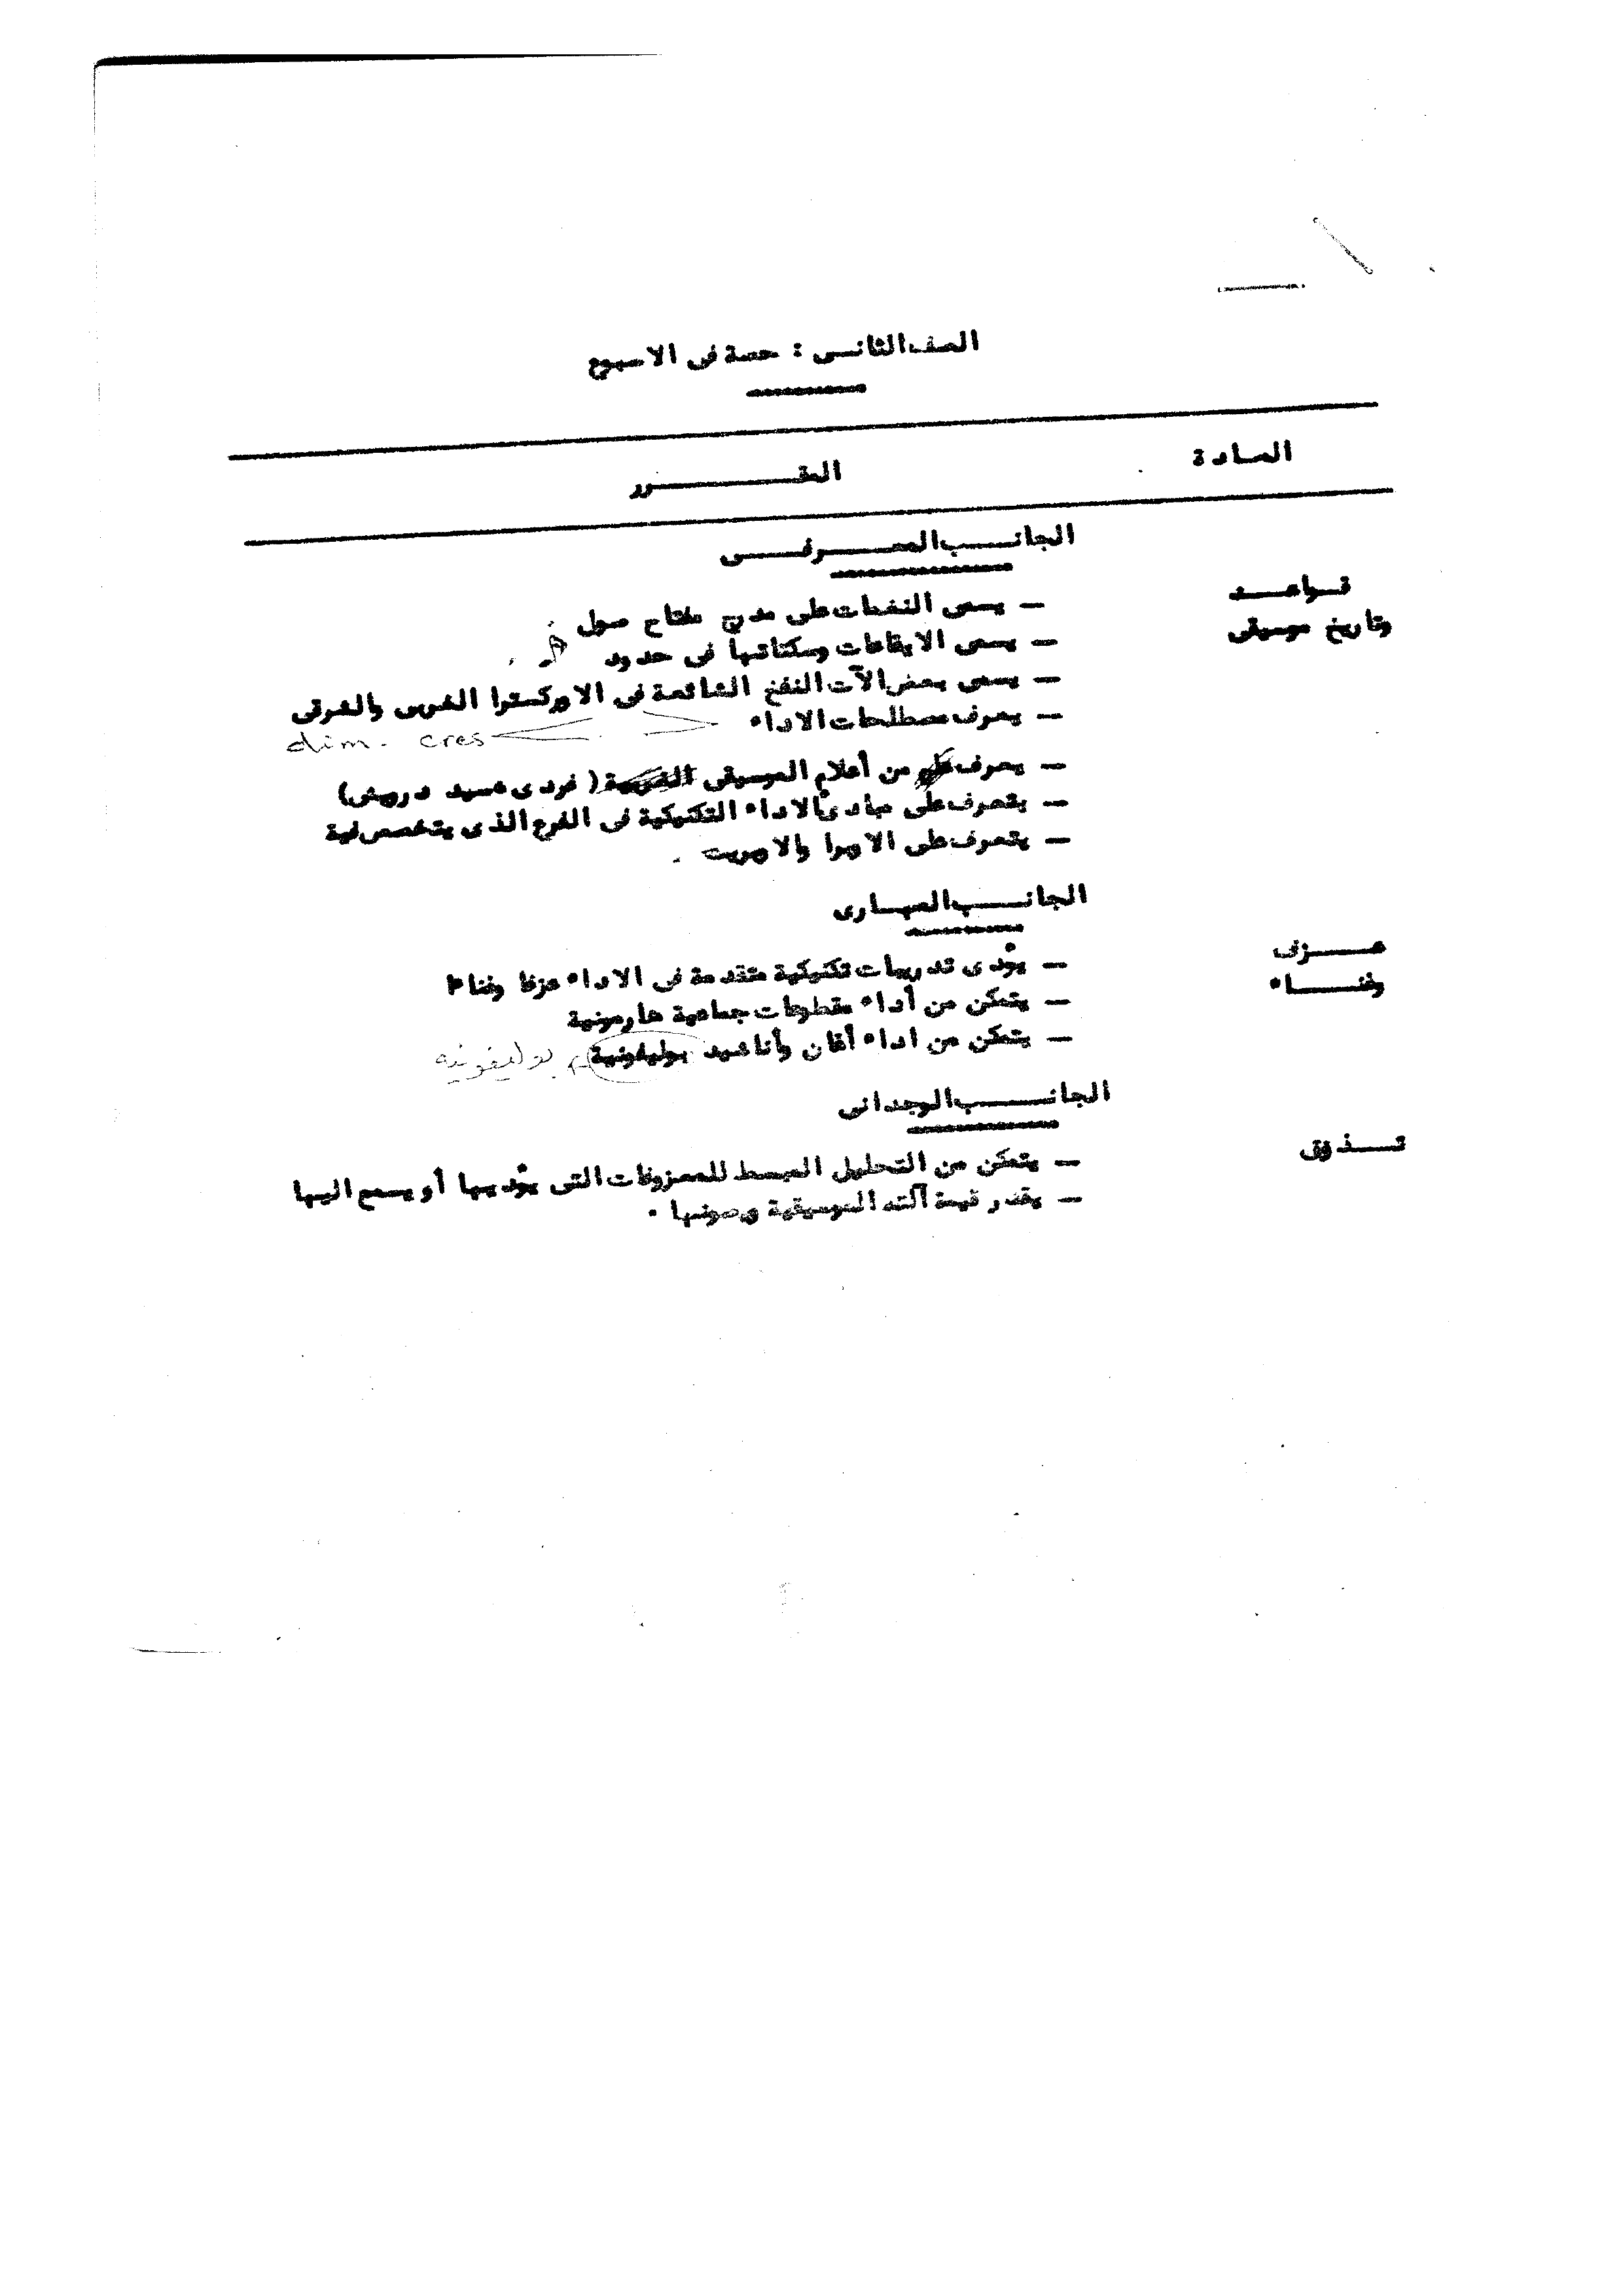 الصف الثانى : حصة فى الاسبوع
المادة
المقرر
الجانب المعرفى
قواعد
وتاريخ موسيقى
— يسمى النغمات على مدرج مفتاح صول
— يسمى الايقاعات وسكتاتها فى حدود
— يسمى بعض الآت النفخ الشائعة فى الاوركسترا الغربى والشرقى
— يعرف مصطلحات الاداء
cres dim.
— يعرف من أعلام الموسيقى ( فردى سيد درويش)
— يتعرف على مبادئ الاداء التكنيكية فى الفرع الذى يتخصص فية
— يتعرف على الاوبرا والاوبريت .
الجانب المهارى
عزف
وغناء
— يؤدى تدريبات تكنيكية متقدمة فى الاداء عزفا وغناءا
— يتمكن من أداء مقطوعات جماعية هارمونية
— يتمكن من اداء أغان وأناشيد بوليفونية بوليفونيه
الجانب الوجدانى
تذوق
— يتمكن من التحليل المبسط للمعزوفات التى يؤديها أو يسمع اليها
— يقدر قيمة آلته الموسيقية ويصونها .